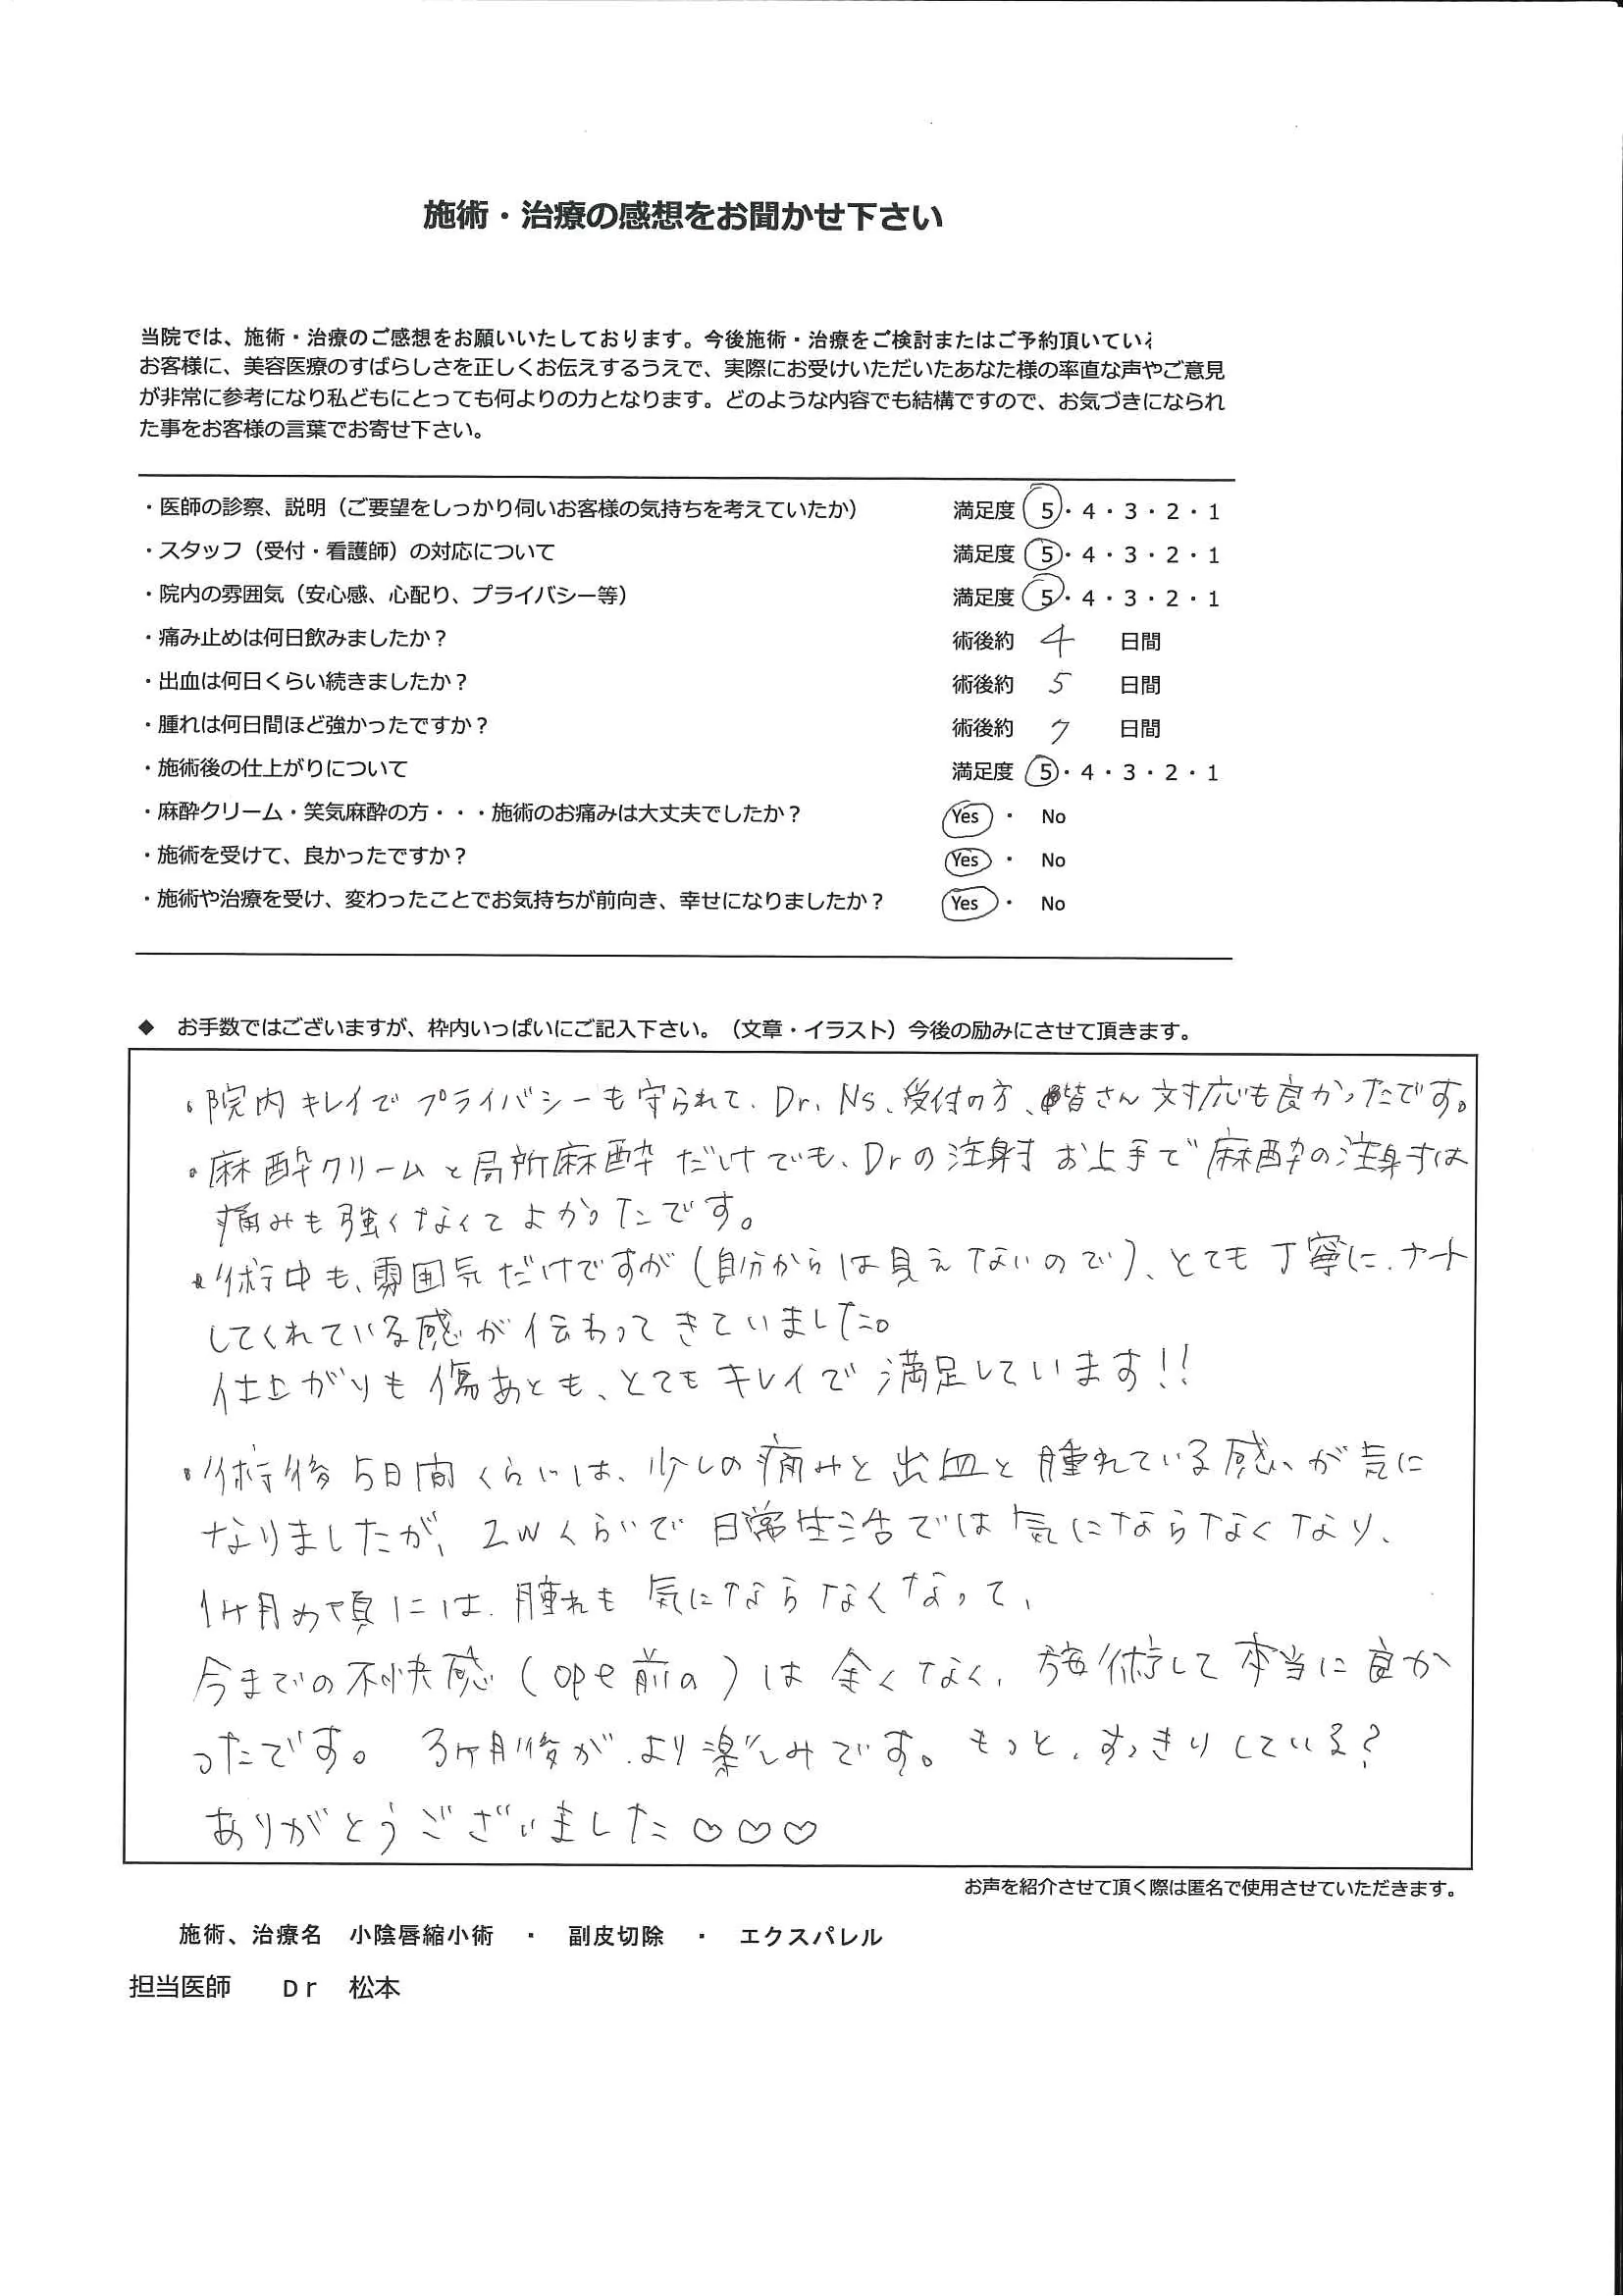 施術・治療の感想をお聞かせ下さい
当院では、施術・治療のご感想をお願いいたしております。今後施術・治療をご検討またはご予約頂いてい
お客様に、美容医療のすばらしさを正しくお伝えするうえで、実際にお受けいただいたあなた様の率直な声やご意見
が非常に参考になり私どもにとっても何よりの力となります。どのような内容でも結構ですので、お気づきになられ
た事をお客様の言葉でお寄せ下さい。
・医師の診察、説明（ご要望をしっかり伺いお客様の気持ちを考えていたか） 満足度 5・4・3・2・1
・スタッフ（受付・看護師）の対応について 満足度 5・4・3・2・1
・院内の雰囲気（安心感、心配り、プライバシー等） 満足度 5・4・3・2・1
・痛み止めは何日飲みましたか？ 術後約 4 日間
・出血は何日くらい続きましたか？ 術後約 5 日間
・腫れは何日間ほど強かったですか？ 術後約 7 日間
・施術後の仕上がりについて 満足度 5・4・3・2・1
・麻酔クリーム・笑気麻酔の方・・・施術のお痛みは大丈夫でしたか？ Yes ・ No
・施術を受けて、良かったですか？ Yes ・ No
・施術や治療を受け、変わったことでお気持ちが前向き、幸せになりましたか？ Yes ・ No
◆ お手数ではございますが、枠内いっぱいにご記入下さい。（文章・イラスト）今後の励みにさせて頂きます。
・院内キレイでプライバシーも守られて、Dr、Ns、受付の方、皆さん対応も良かったです。
・麻酔クリームと局所麻酔だけでも、Drの注射お上手で麻酔の注射は
痛みも強くなくてよかったです。
・術中も、雰囲気だけですが（自分からは見えないので）、とても丁寧に、ナート
してくれている感が伝わってきていました。
仕上がりも傷あとも、とてもキレイで満足しています!!
・術後5日間くらいは、少しの痛みと出血と腫れている感じが気に
なりましたが、2wくらいで日常生活では気にならなくなり、
1ヶ月め頃には、腫れも気にならなくなって、
今までの不快感（ope前の）は全くなく、施術して本当に良か
ったです。3ヶ月後が、より楽しみです。もっと、すっきりしている？
ありがとうございました♡♡♡
お声を紹介させて頂く際は匿名で使用させていただきます。
施術、治療名 小陰唇縮小術 ・ 副皮切除 ・ エクスパレル
担当医師 Dr 松本